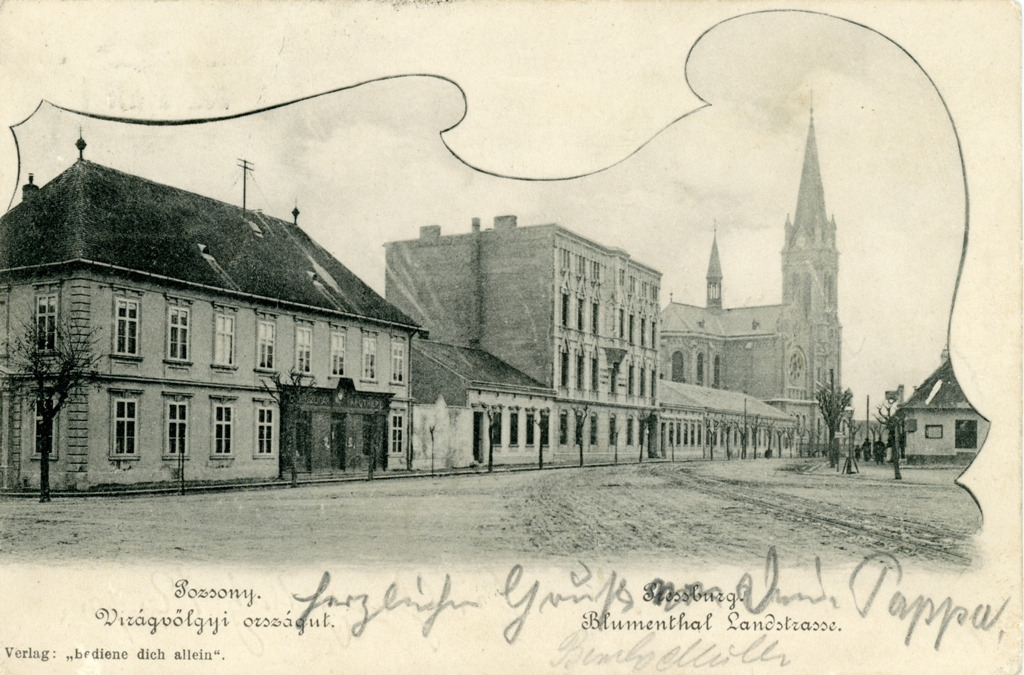 Pozsony.
Virágvölgyi országut.
Pressburg.
Blumenthal Landstrasse.
Verlag: „bediene dich allein“.
herzlichen Gruß von Papa